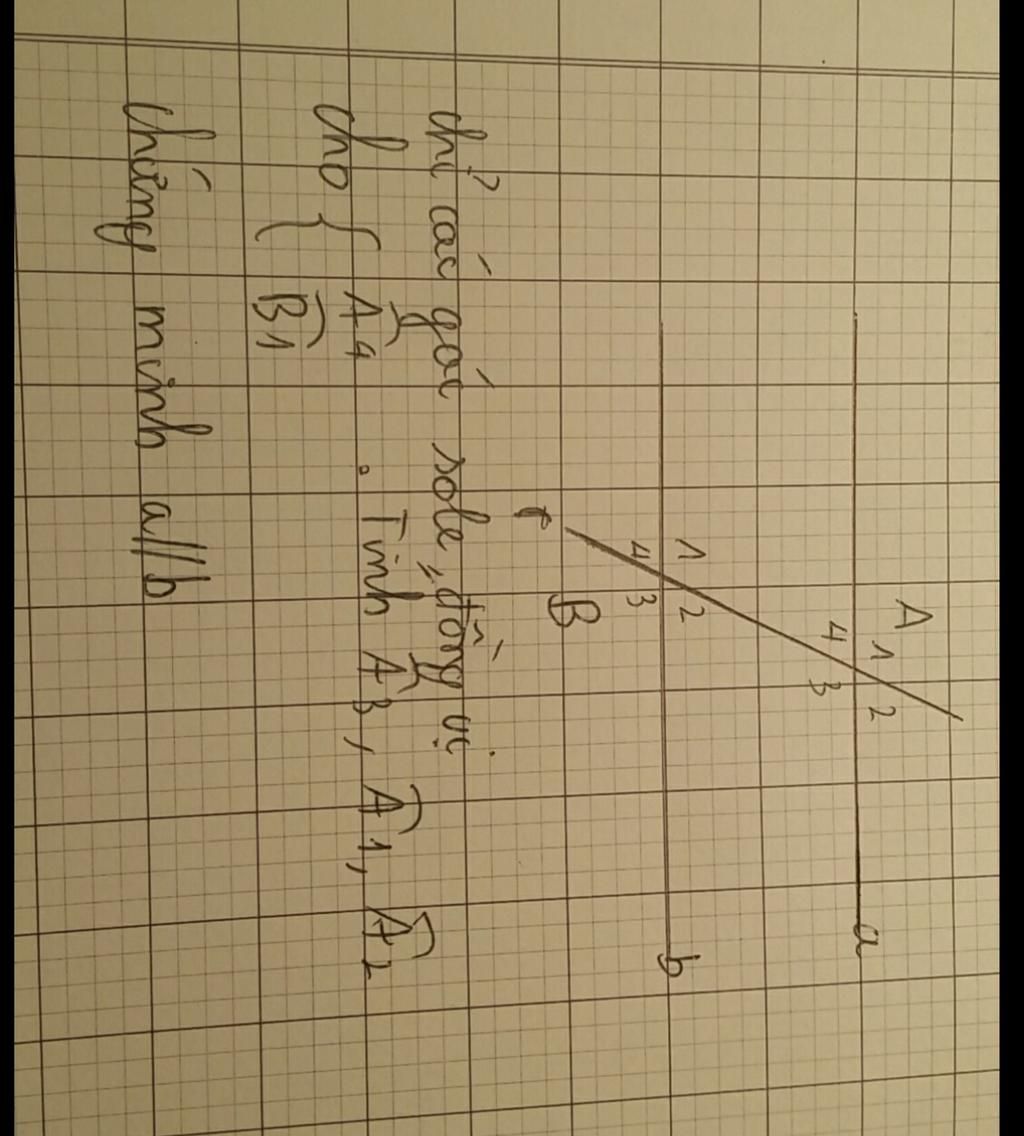 A 1 2
4 3 a
1 2
4 3 b
B
c
chỉ các góc sole, đồng vị.
cho { Â4 . Tính Â3, Â1, Â2
B̂1
Chứng minh a//b